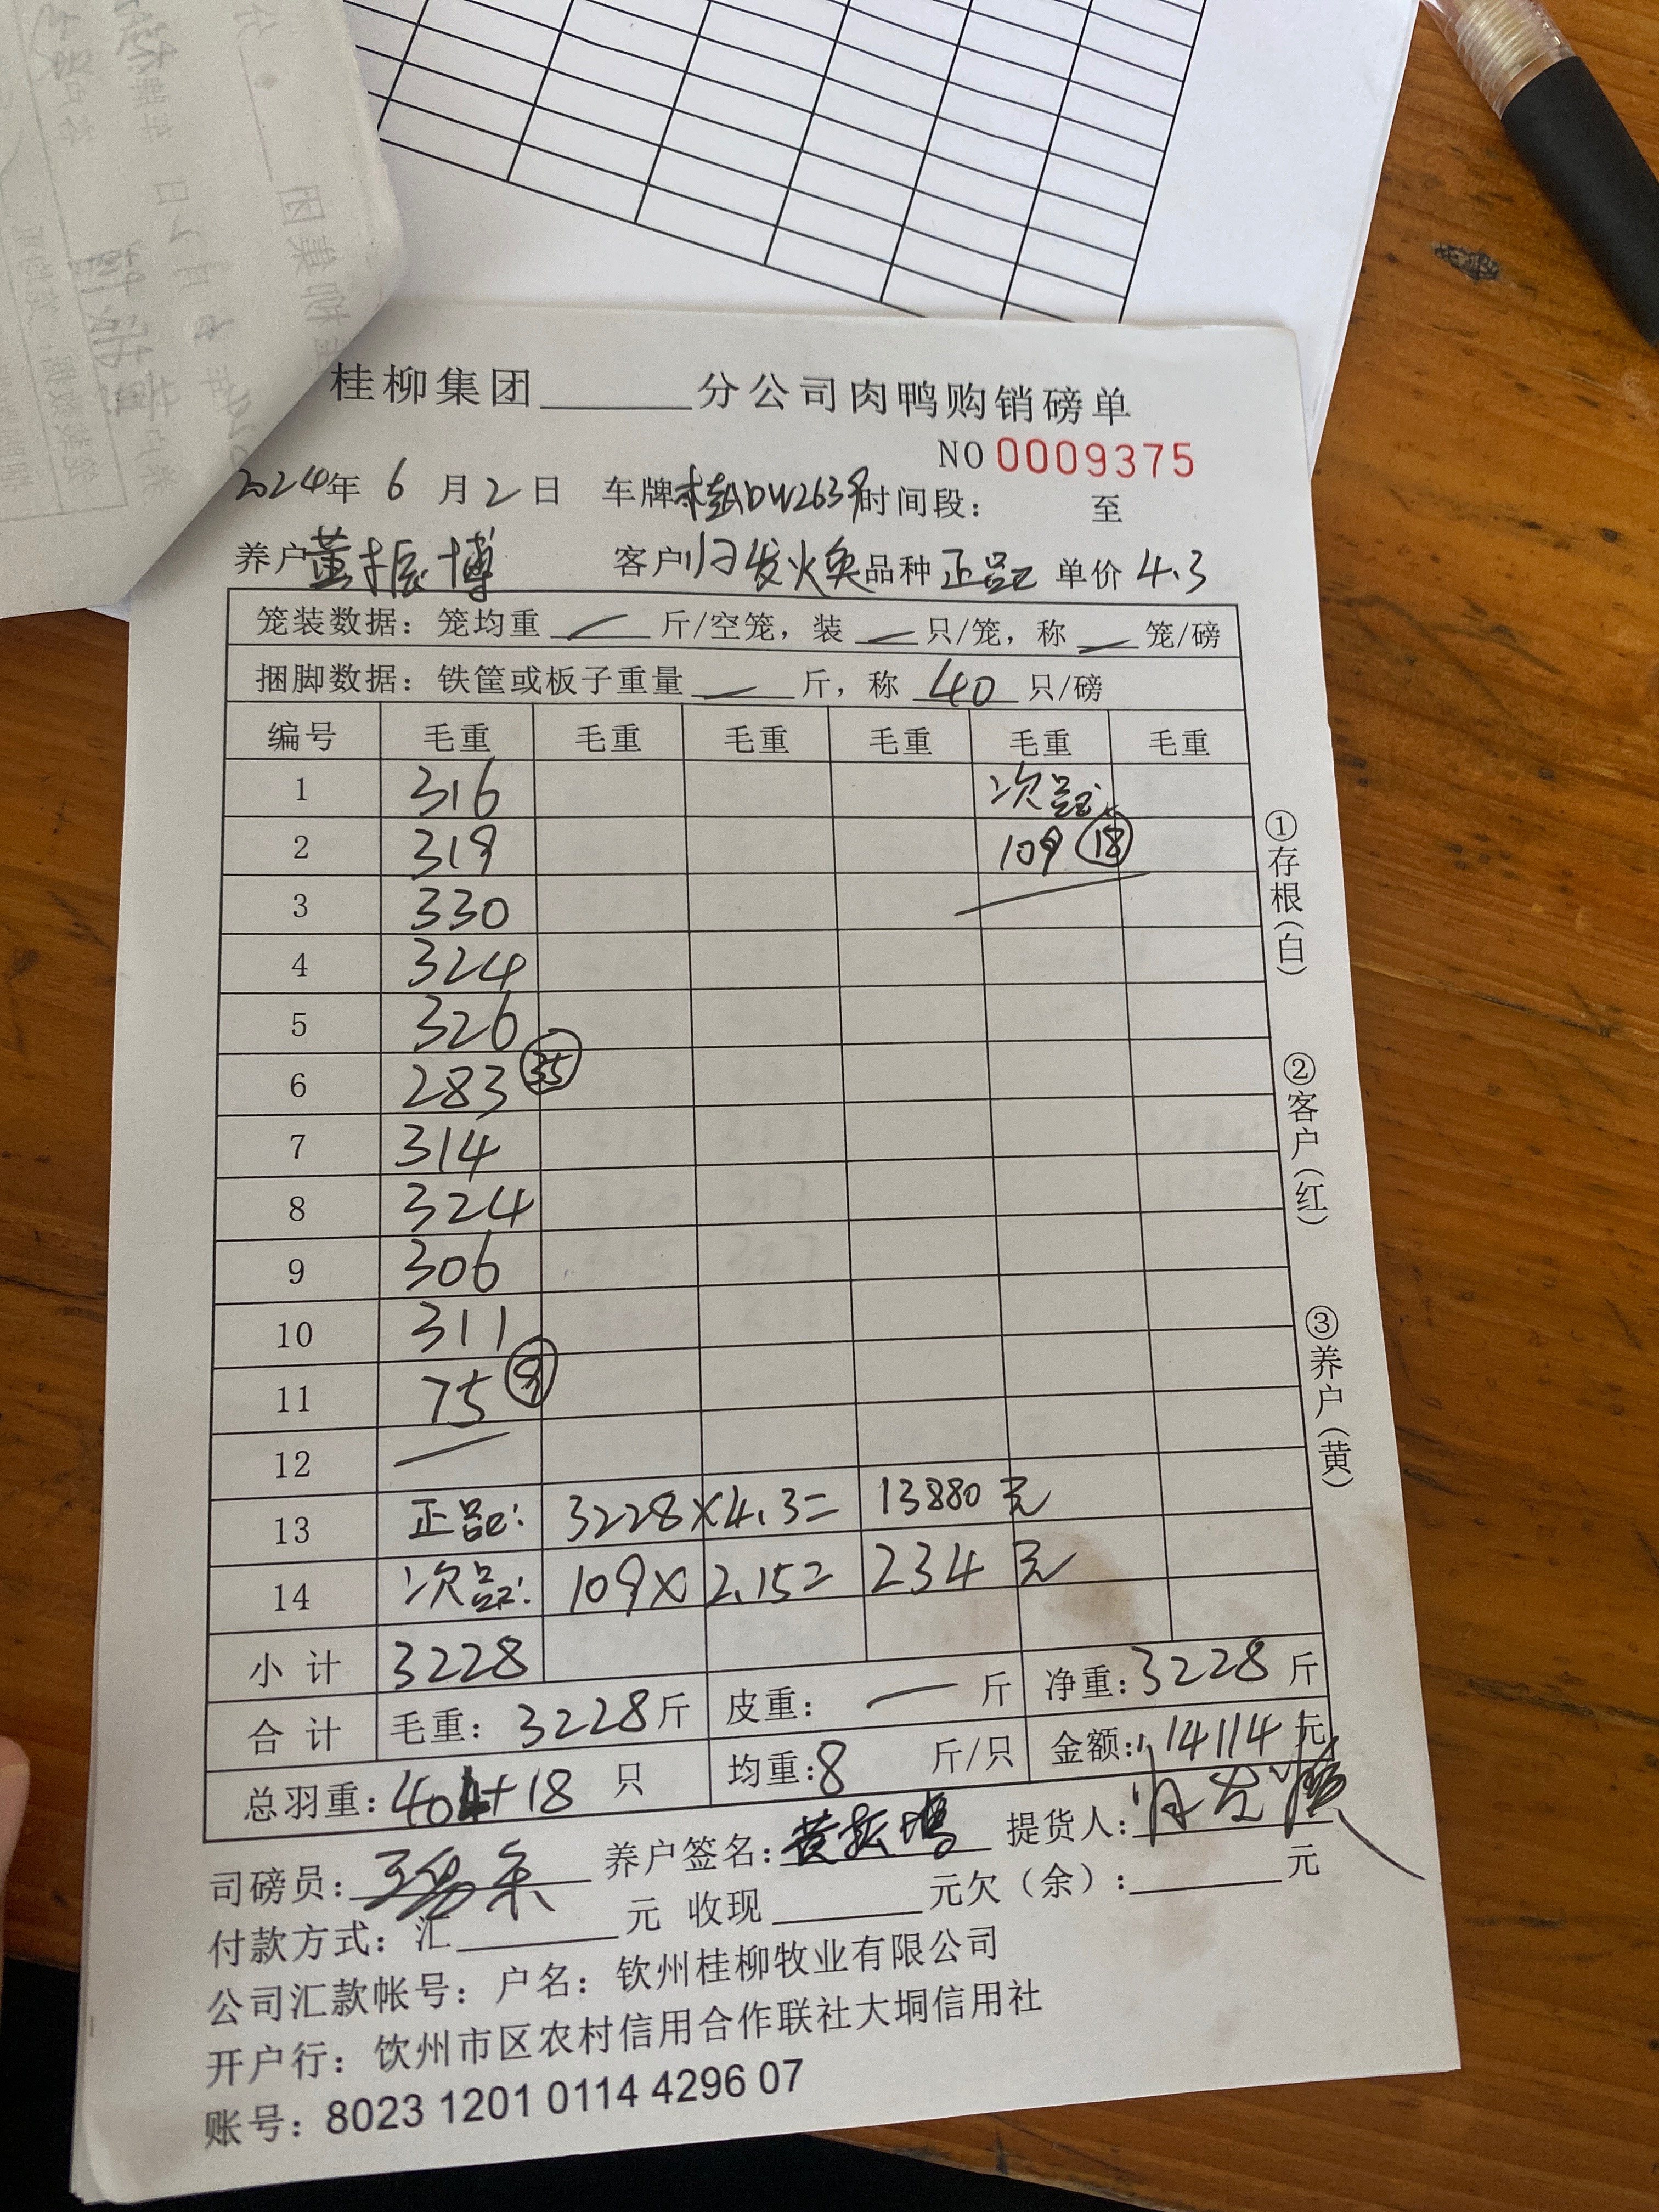 桂柳集团______分公司肉鸭购销磅单
NO 0009375
2024年 6 月 2 日 车牌桂ADW263 时间段: 至
养户 黄振博 客户 归发焕 品种 正品 单价 4.3
笼装数据: 笼均重 — 斤/空笼, 装 — 只/笼, 称 — 笼/磅
捆脚数据: 铁筐或板子重量 — 斤, 称 40 只/磅
编号 毛重 毛重 毛重 毛重 毛重 毛重
1 316 次品:
2 319 109 18
3 330
4 324
5 326
6 283 35
7 314
8 324
9 306
10 311
11 75 9
12
13 正品: 3228×4.3= 13880 元
14 次品: 109×2.15= 234 元
小计 3228
合计 毛重: 3228斤 皮重: — 斤 净重: 3228 斤
总羽重: 404+18 只 均重: 8 斤/只 金额: 14114 元
司磅员: 养户签名: 提货人:
付款方式: 汇______元 收现______元欠(余):______元
公司汇款帐号: 户名: 钦州桂柳牧业有限公司
开户行: 钦州市区农村信用合作联社大垌信用社
账号: 8023 1201 0114 4296 07
①存根(白)
②客户(红)
③养户(黄)